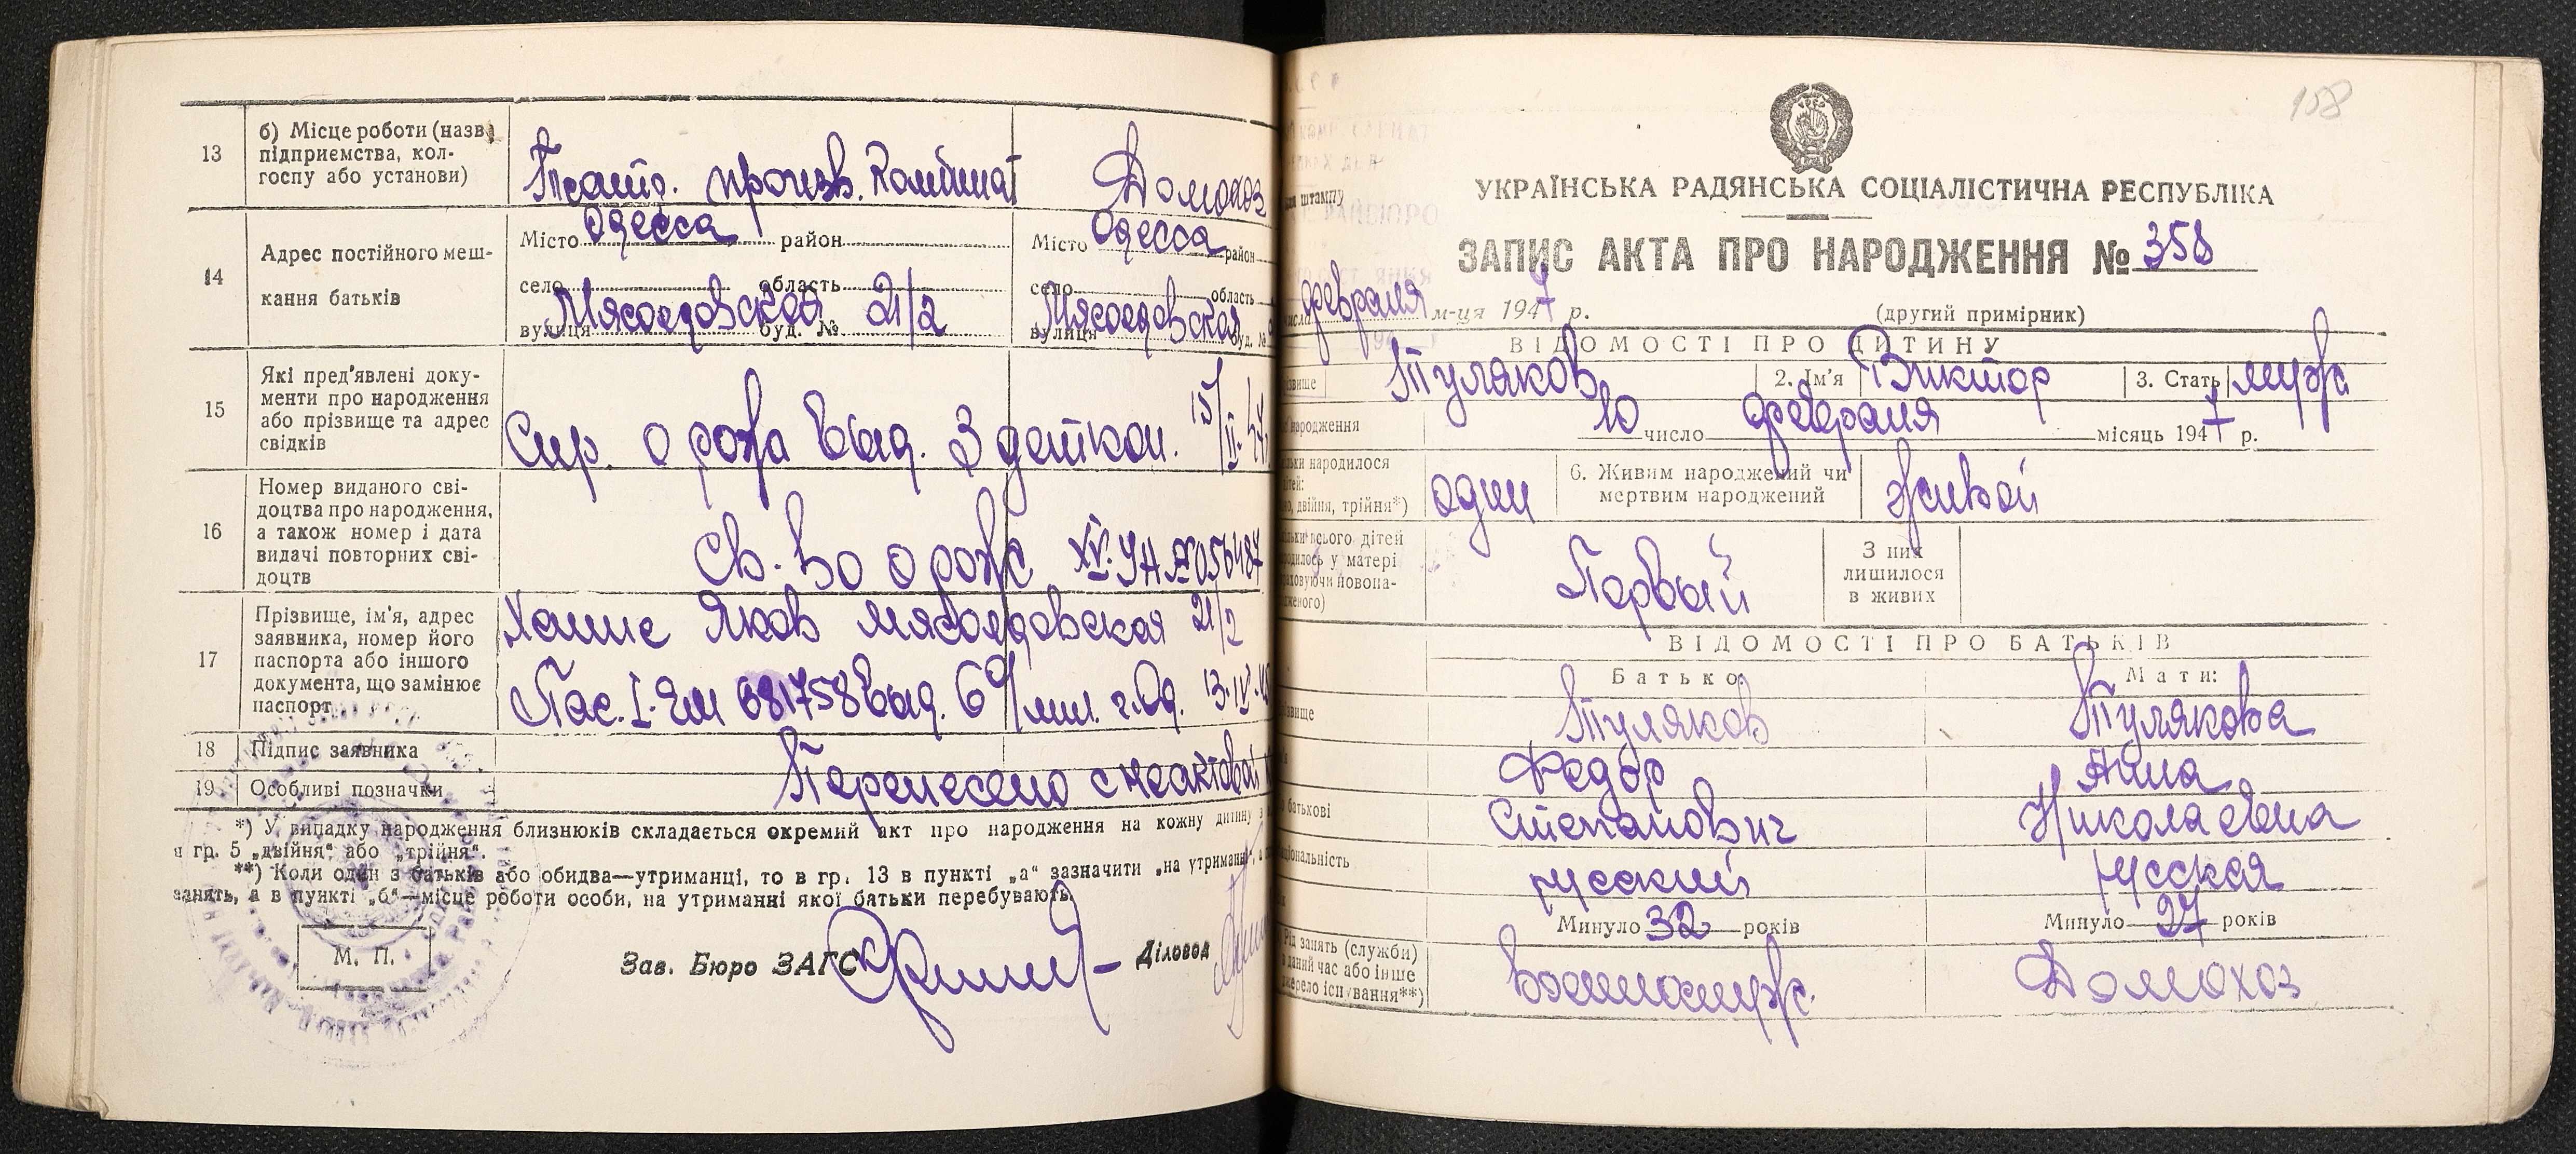 13
б) Місце роботи (назва
підприємства, кол-
госпу або установи)
Театр. произв. Комбинат
Домохоз
14
Адрес постійного меш-
кання батьків
Місто Одесса район
село область
вулиця Мясоедовская буд. № 21/2
Місто Одесса район
село область
вулиця Мясоедовская буд. №
15
Які пред'явлені доку-
менти про народження
або прізвище та адрес
свідків
Спр. о рожд выд. 3 деткон. 15/II-47
16
Номер виданого сві-
доцтва про народження,
а також номер і дата
видачі повторних сві-
доцтв
Св. во о рожд XV-УН № 056487
17
Прізвище, ім'я, адрес
заявника, номер його
паспорта або іншого
документа, що замінює
паспорт
Хаинс Яков Мясоедовская 21/2
Пас. I-ЕМ 681758 выд. 6 о/мил. г. Од. 13-IV-
18
Підпис заявника
19
Особливі позначки
Перенесено с неактовой
*) У випадку народження близнюків складається окремий акт про народження на кожну дитину з
гр. 5 „двійня“ або „трійня“.
**) Коли один з батьків або обидва—утриманці, то в гр. 13 в пункті „а“ зазначити „на утриманні“,
занять, а в пункті „б“—місце роботи особи, на утриманні якої батьки перебувають.
М. П.
Зав. Бюро ЗАГС
Діловод
158
УКРАЇНСЬКА РАДЯНСЬКА СОЦІАЛІСТИЧНА РЕСПУБЛІКА
штампу
ЗАПИС АКТА ПРО НАРОДЖЕННЯ № 358
февраля м-ця 1947 р.
(другий примірник)
ВІДОМОСТІ ПРО ДИТИНУ
Туляков 2. Ім'я Виктор 3. Стать муж
народження 10 число февраля місяць 1947 р.
народилося
двійня, трійня*)
один
6. Живим народжений чи
мертвим народжений
живой
всього дітей
у матері
новона-
Первый
З них
лишилося
в живих
ВІДОМОСТІ ПРО БАТЬКІВ
Батько:
Мати:
Туляков
Тулякова
Федор
Анна
батькові
Степанович
Николаевна
русский
русская
Минуло 32 років
Минуло 27 років
Рід занять (служби)
в даний час або інше
джерело існування**)
Военнослуж.
Домохоз